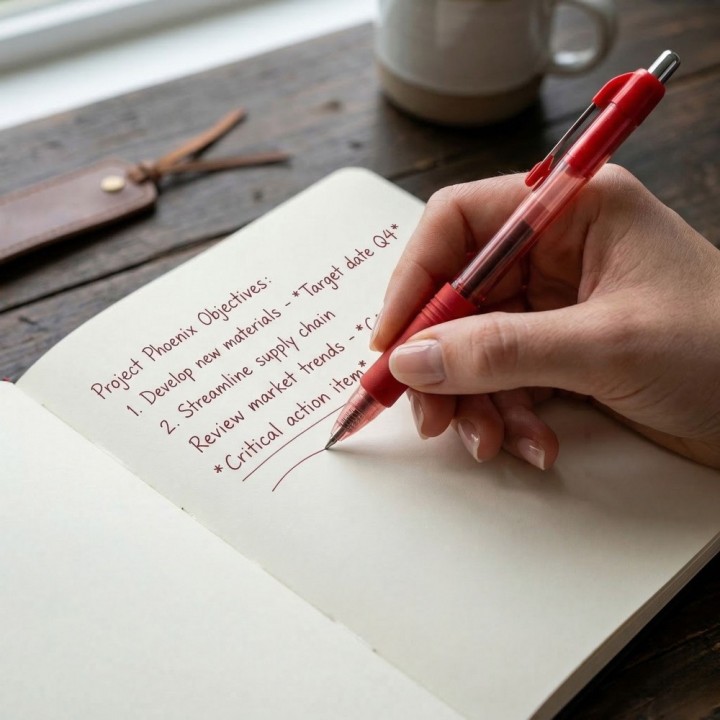 Project Phoenix Objectives:
1. Develop new materials - *Target date Q4*
2. Streamline supply chain
Review market trends - *C
*Critical action item*